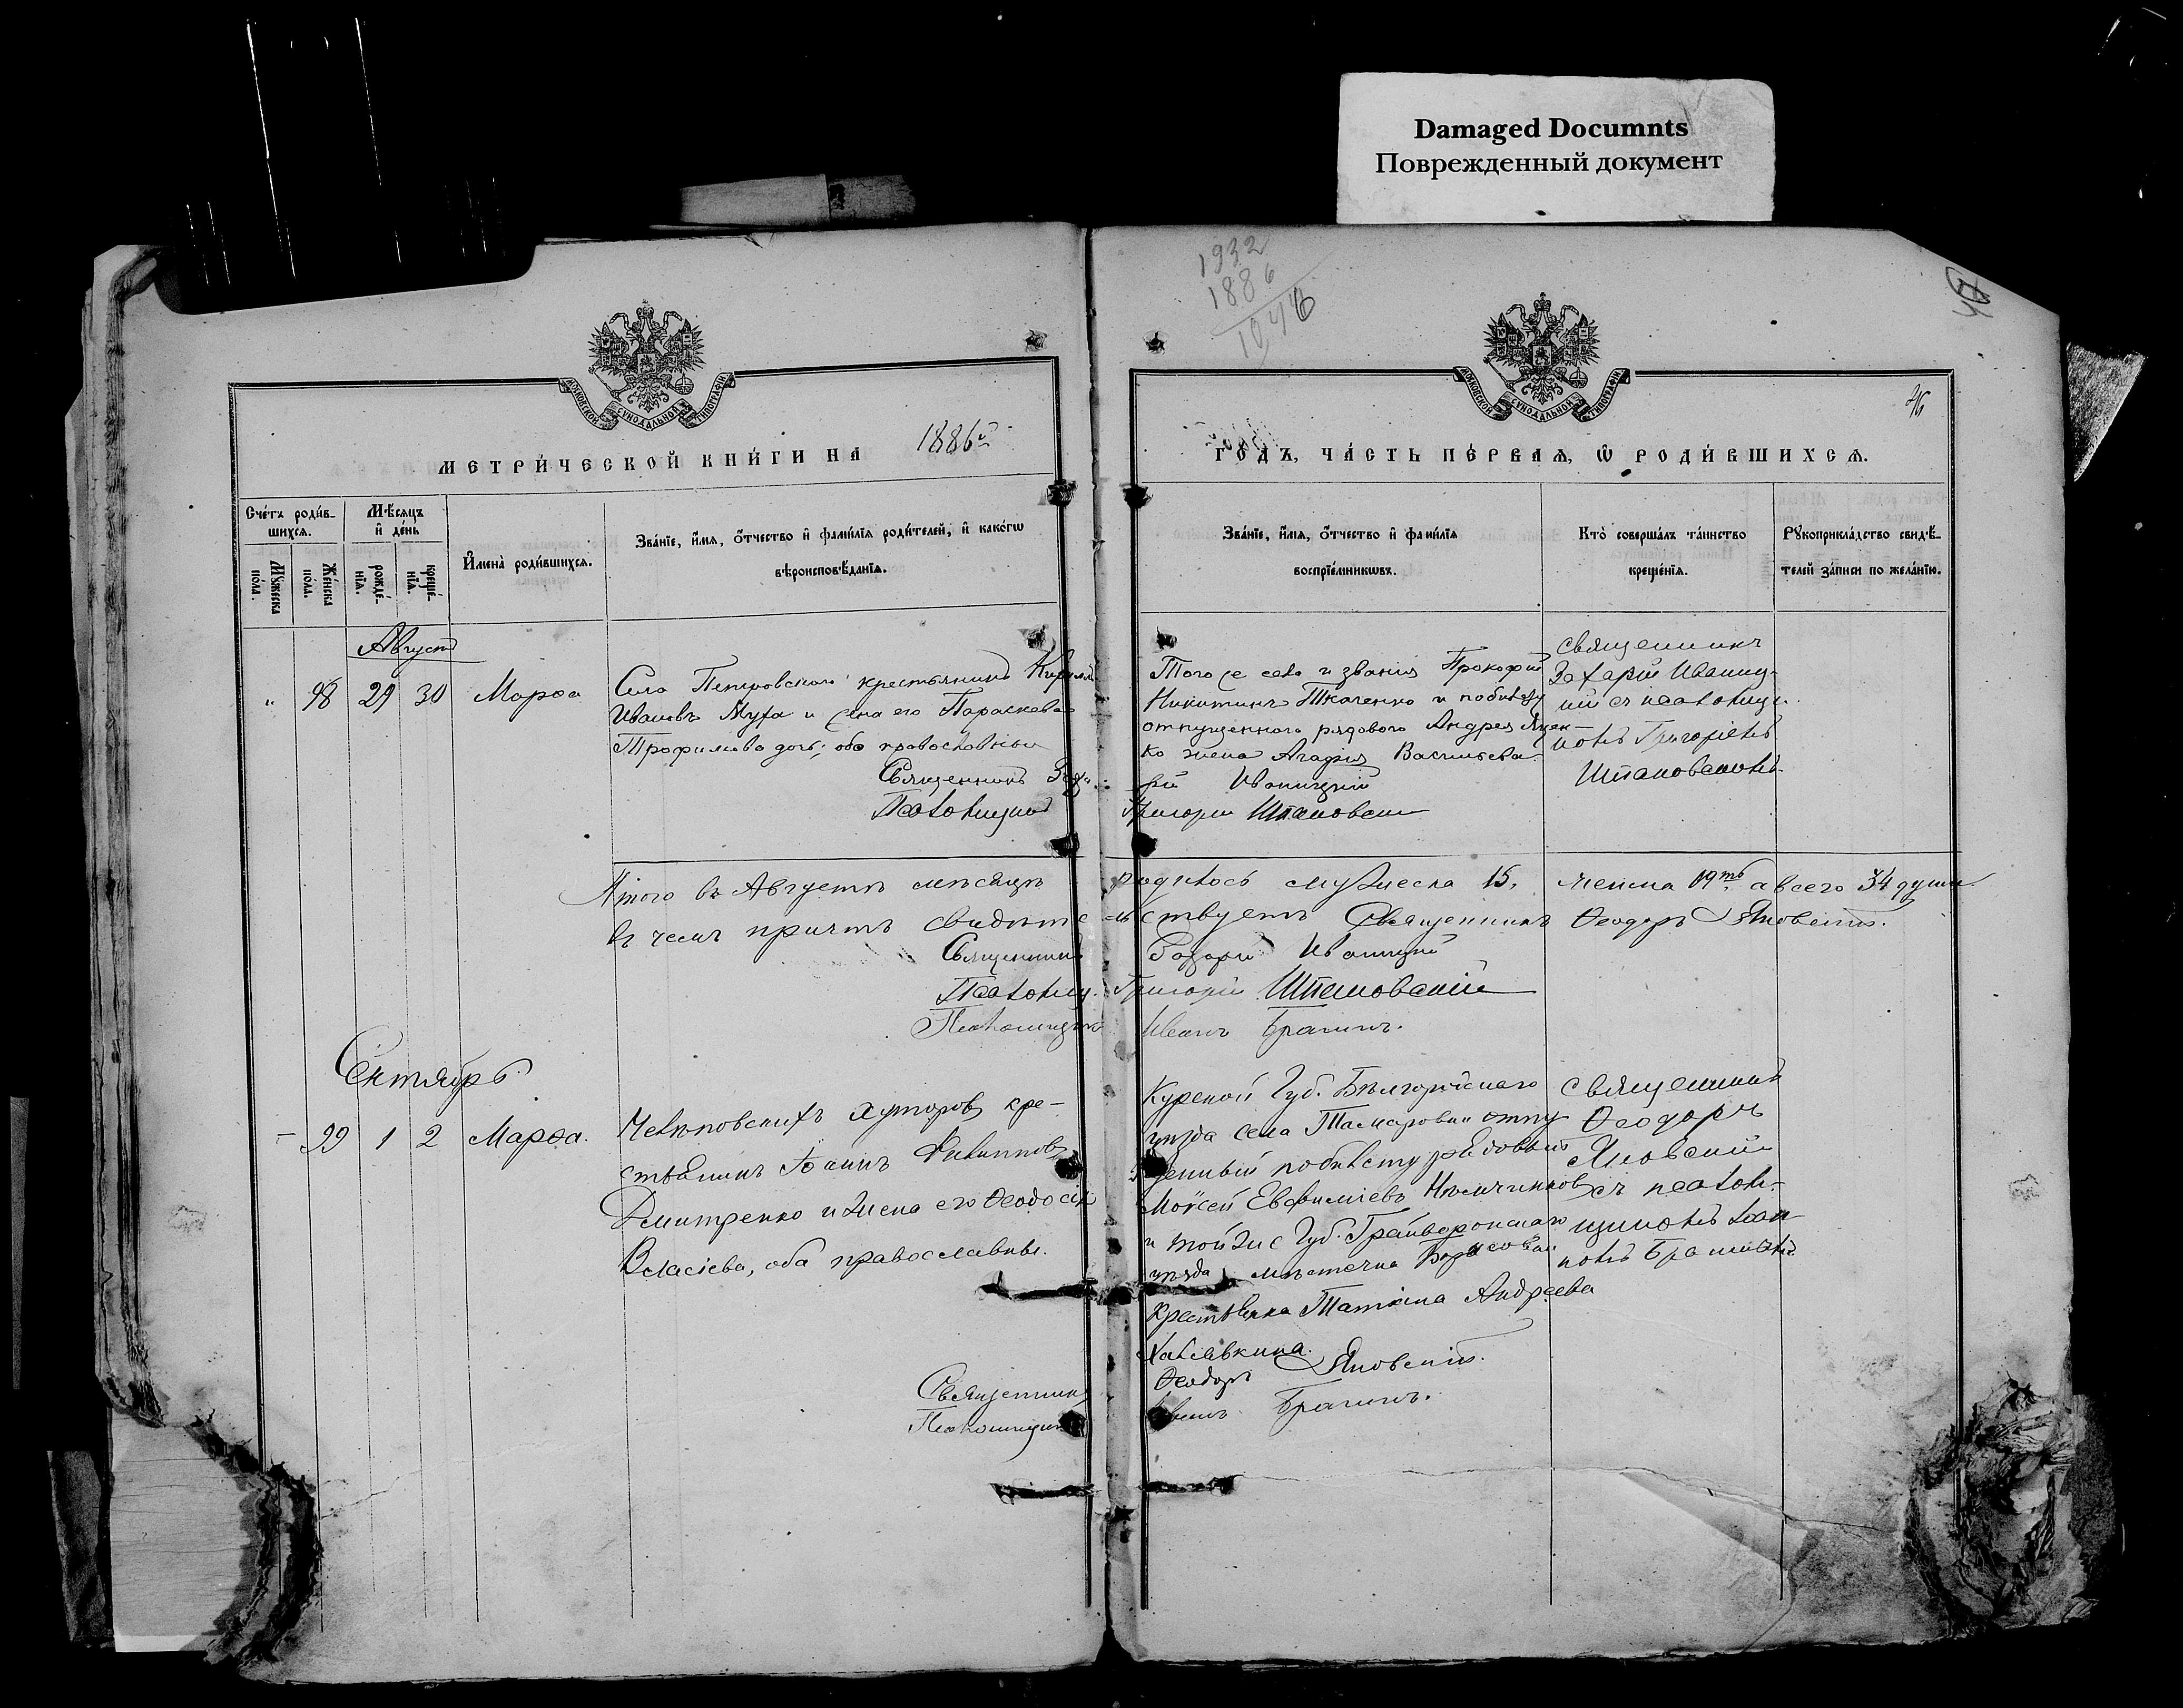 Damaged Documnts
Поврежденный документ
1932
1886
1046
46
МОСКОВСКОЙ СѴНОДАЛЬНОЙ ТИПОГРАФІИ
МОСКОВСКОЙ СѴНОДАЛЬНОЙ ТИПОГРАФІИ
МЕТРИ́ЧЕСКОЙ КНИ́ГИ НА 1886й
ГО́ДЪ, ЧА́СТЬ ПЕ́РВАѦ, Ѡ РОДИ́ВШИХСѦ.
Сче́тъ роди́в-
шихсѧ.
Мꙋ́жеска по́ла.
Же́нска по́ла.
Мѣ́сѧцъ
и҆ де́нь
рожде́-
нїѧ.
креще́-
нїѧ.
И҆мена̀ роди́вшихсѧ.
Зва́нїе, и҆́мѧ, ѻ҆́тчество и҆ фами́лїѧ роди́телей, и҆ како́гѡ
вѣроисповѣ́данїѧ.
Зва́нїе, и҆́мѧ, ѻ҆́тчество и҆ фами́лїѧ
воспрїе́мникѡвъ.
Кто̀ соверша́лъ та́инство
креще́нїѧ.
Рꙋкоприкла́дство свидѣ́-
телей за́писи по жела́нїю.
Августъ
" 98 29 30 Марѳа
Села Петровскаго крестьянинъ Кириллъ
Ивановъ Муха и жена его Параскева
Трофимова дочь; оба православные
Священникъ Заха-
Псаломщикъ
Того же села и званія Прокофій
Никитинъ Ткаченко и побилету
отпущеннаго рядового Андрея Яцен-
ко жена Агафія Васильева.
рій Иваницкій
Григорій Штановскій
священникъ
Захарій Иваниц-
кій съ псаломщи-
комъ Григоріемъ
Штановскимъ
Итого въ Августѣ мѣсяцѣ родилось мужеска 15, женска 19ть а всего 34 души
въ чемъ причтъ свидѣтельствуетъ Священникъ Ѳеодоръ Яновскій.
Священникъ Захарій Иваницкій
Псаломщ. Григорій Штановскій
Псаломщикъ Иванъ Брагинъ.
Сентябрь
– 99 1 2 Марѳа.
хуторовъ кре-
стьянинъ Іоаннъ Филипповъ
Дмитренко и жена его Ѳеодосія
Власіева, оба православные.
Священникъ
Псаломщикъ
Курской Губ. Бѣлгородскаго
уѣзда села Тамаровки отпу-
щенный побилету рядовый
Моѵсей Евѳиміевъ Нѣмчиновъ
и тойже Губ. Грайворонскаго
уѣзда мѣстечка Борисовки
Крестьянка Татіана Андреева
Халявкина.
Ѳеодоръ Яновскій.
Иванъ Брагинъ.
священникъ
Ѳеодоръ
Яновскій
съ псалом-
щикомъ Іоан-
номъ Брагинымъ